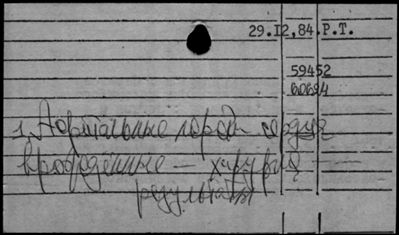 29.I2,84.P.T.
59452
60694
1. Аортальные пороки сердца
врожденные — хирургия
результаты